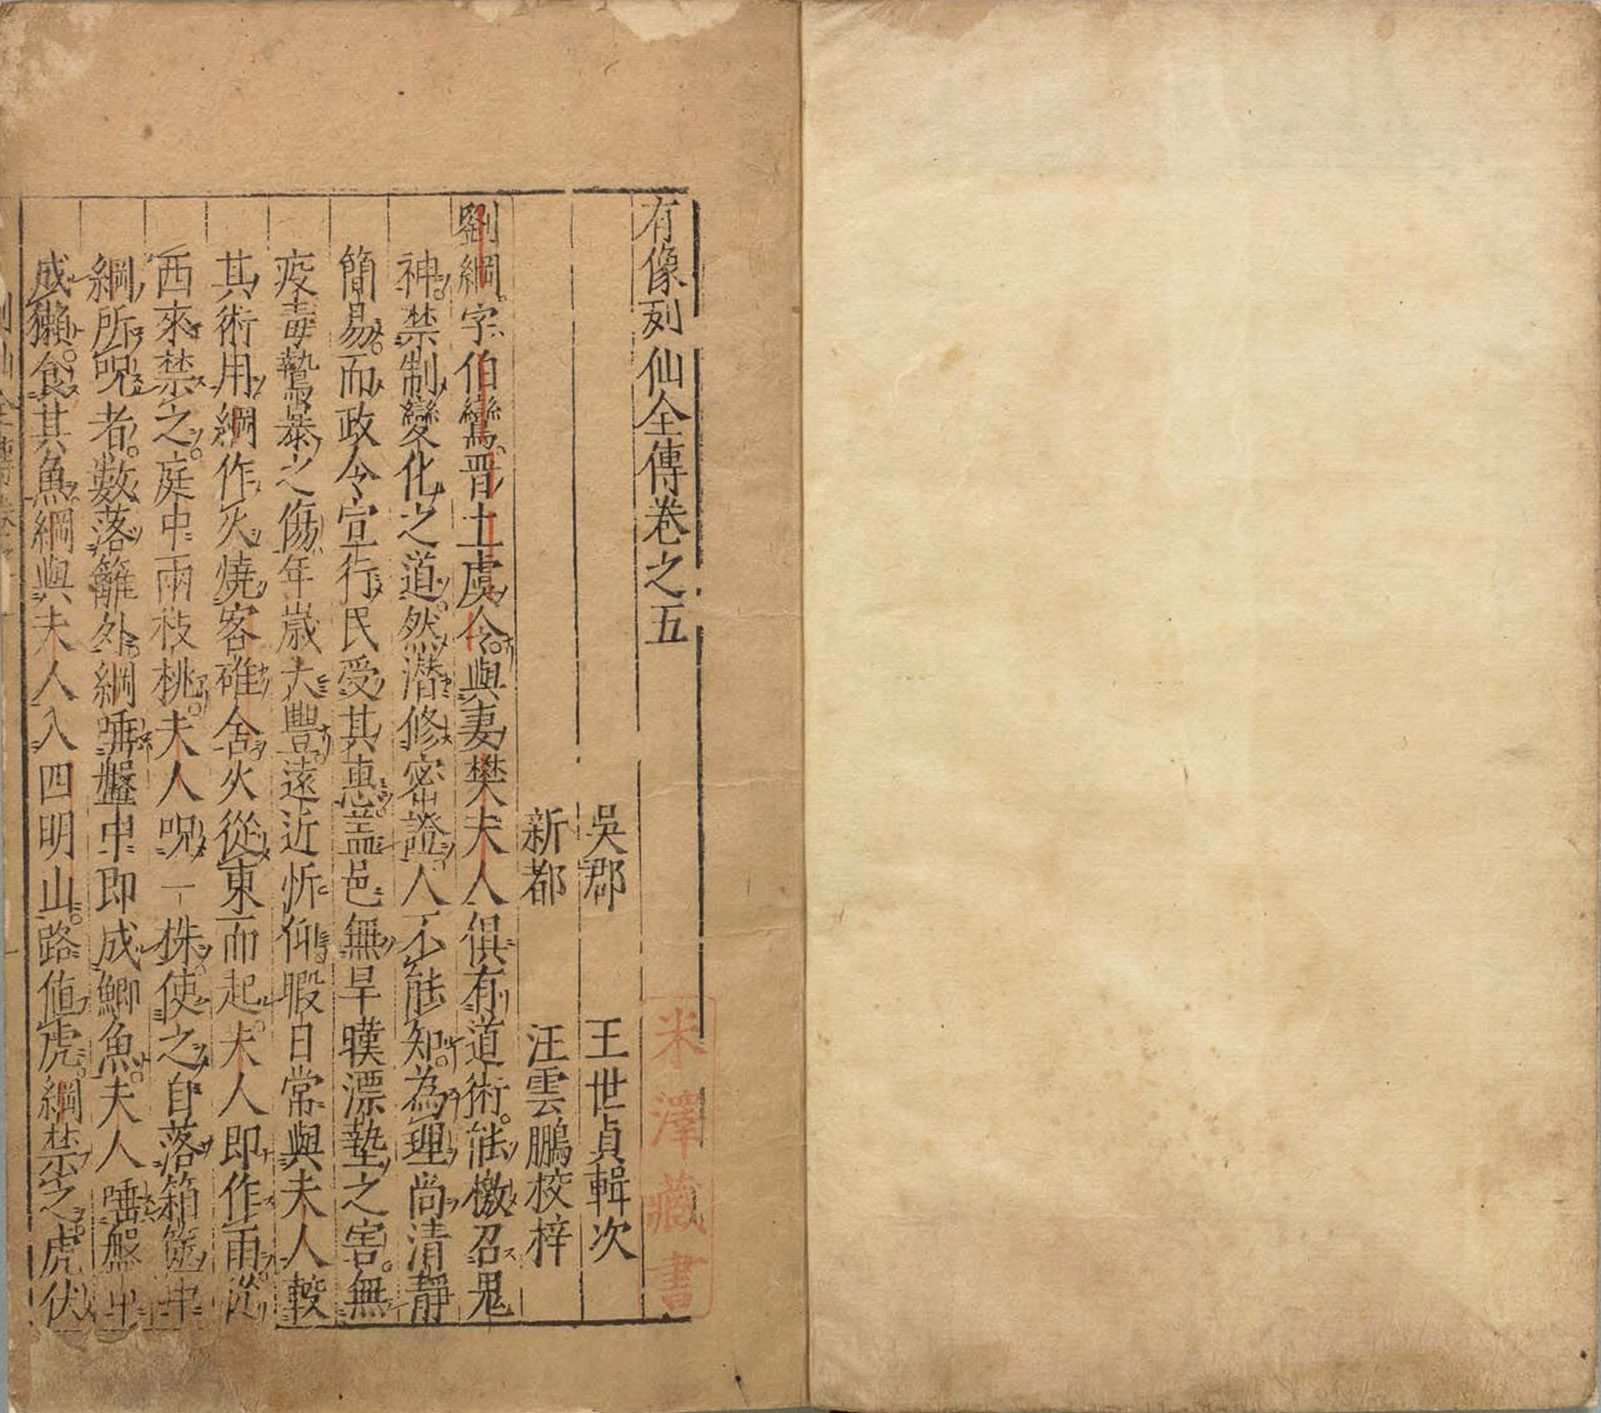 有像列仙全傳卷之五
吳郡 王世貞輯次
新都 汪雲鵬校梓
劉綱字伯鸞晋上虞令與妻樊夫人俱有道術能檄召鬼
神禁制變化之道然潛修密證人不能知為理尚清靜
簡易而政令宣行民受其惠蓋邑無旱暵漂墊之害無
疫毒鷙暴之傷年歲大豐遠近忻仰暇日常與夫人較
其術用綱作火燒客碓舍火從東而起夫人即作雨從
西來禁之庭中兩枝桃夫人呪一株使之自落箱篋中
綱所呪者數落籬外綱唾盤中即成鯽魚夫人唾盤中
成獺食其魚綱與夫人入四明山路値虎綱禁之虎伏
米澤藏書